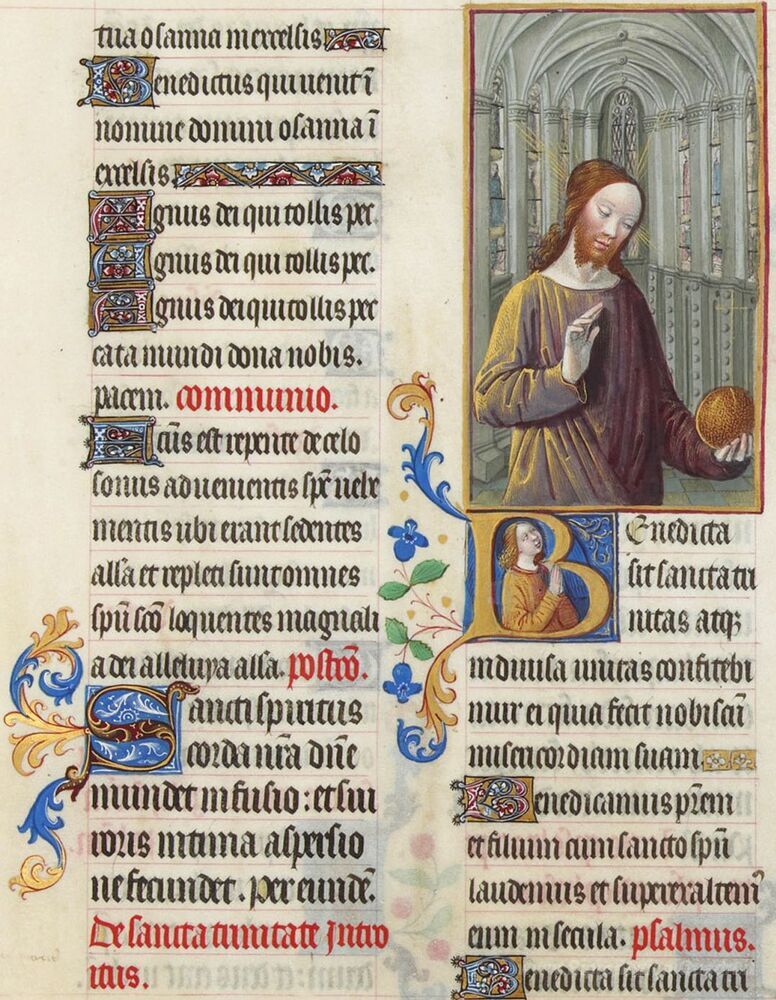 tua osanna in excelsis
Benedictus qui uenit ī
nomine domini osanna ī
excelsis.
Agnus dei qui tollis pec.
Agnus dei qui tollis pec.
Agnus dei qui tollis pec
cata mundi dona nobis.
pacem. communio.
Factus est repente de celo
sonus aduenientis spc uehe
mentis ubi erant sedentes
alla et repleti sunt omnes
spū scō loquentes magnali
a dei alleluya alla. postcō.
Sancti spiritus
corda nr̄a dn̄e
mundet infusio: et sui
roris intima aspersio
ne fecundet. per eundē.
De sancta trinitate Intro
itus.
BEnedicta
sit sancta tri
nitas atq3
indiuisa unitas confitebi
mur ei quia fecit nobiscū
misericordiam suam
Benedicamus pr̄em
et filium cum sancto spū
laudemus et superexaltem9
eum in secula. psalmus.
Benedicta sit sancta tri